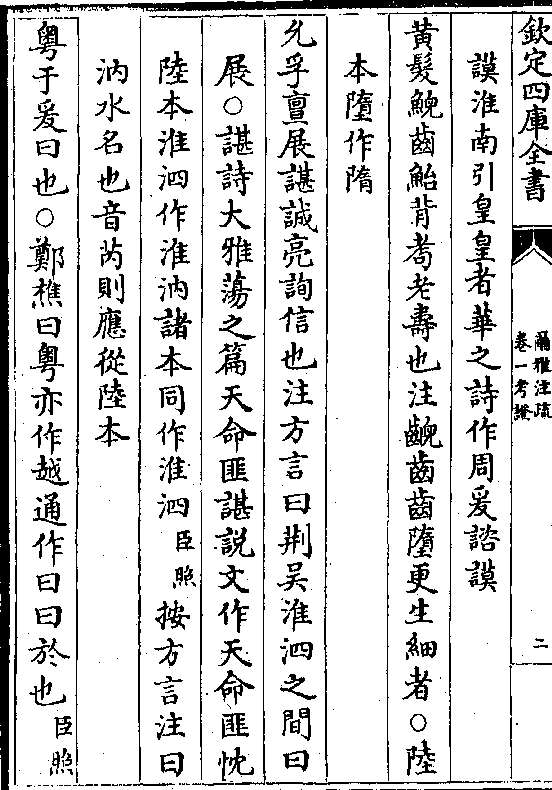 欽定四庫全書
爾雅注疏
卷一考證
二
謨淮南引皇皇者華之詩作周爰諮謨
黃髮鯢齒鮐背耇老壽也注齯齒齒墮更生細者○陸
本墮作隋
允孚亶展諶誠亮詢信也注方言曰荆吳淮泗之間曰
展○諶詩大雅蕩之篇天命匪諶説文作天命匪忱
陸本淮泗作淮汭諸本同作淮泗臣照按方言注曰
汭水名也音芮則應從陸本
粤于爰曰也○鄭樵曰粤亦作越通作曰曰於也臣照